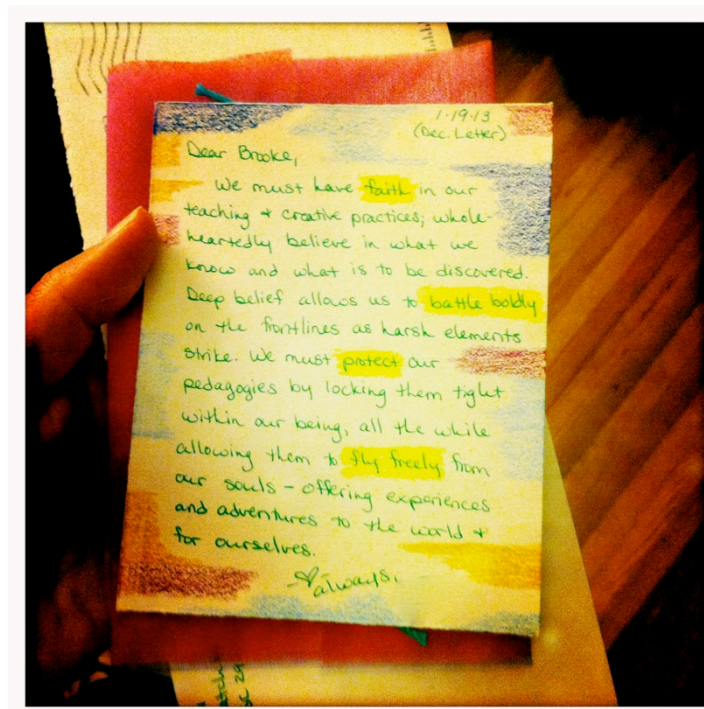 1·19·13
(Dec. Letter)
Dear Brooke,
We must have faith in our
teaching + creative practices; whole-
heartedly believe in what we
know and what is to be discovered.
Deep belief allows us to battle boldly
on the frontlines as harsh elements
strike. We must protect our
pedagogies by locking them tight
within our being, all the while
allowing them to fly freely from
our souls - offering experiences
and adventures to the world +
for ourselves.
always,